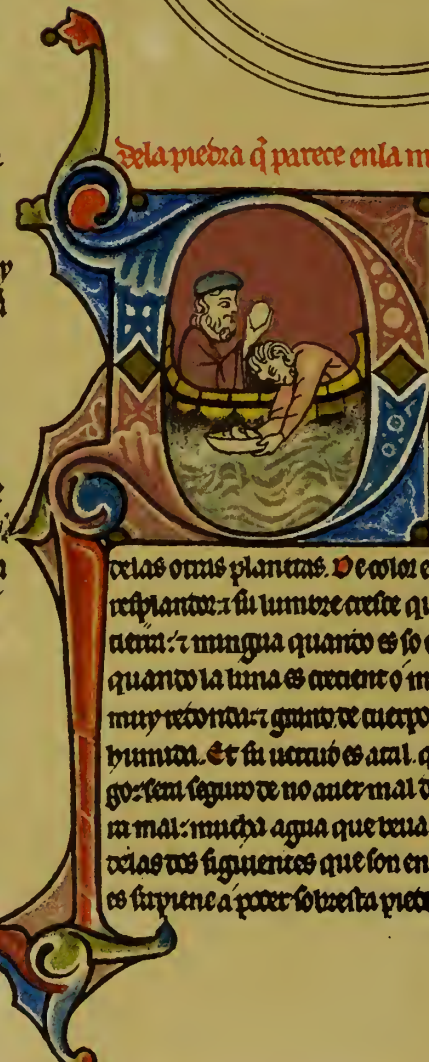 Dela piedra q̃ parece enla m
delas otras planetas. De color e
resplandor. ⁊ su lumbre cresce qu
tierra. ⁊ mingua quando es so
quando la luna es crecient o m
muy redonda. ⁊ grant de cuerpo
humida. Et su uertud es atal. q
go. sera seguro de no auer mal d
ra mal. mucha agua que beua
delas dos figuientes que son en
es su piene a poder sobresta pied